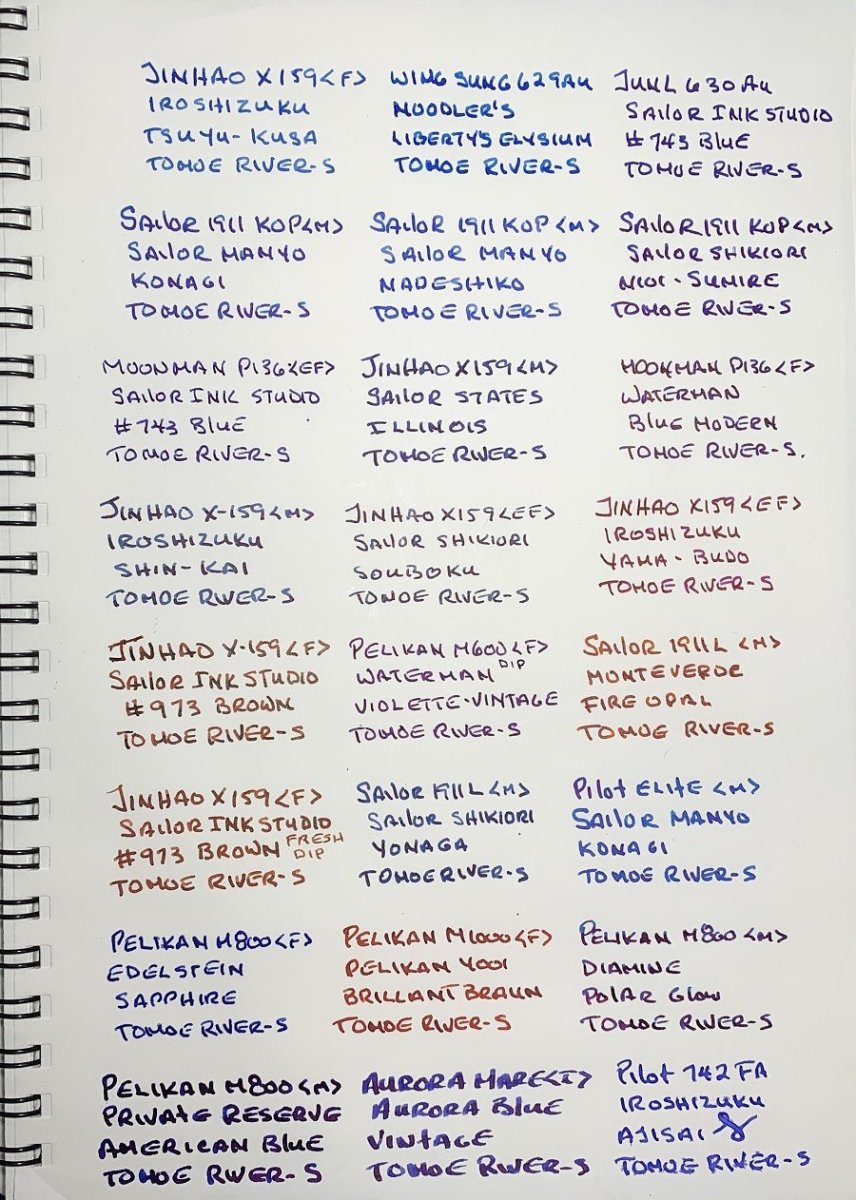 JINHAO X159 <F>
IROSHIZUKU
TSUYU-KUSA
TOMOE RIVER-S
WING SUNG 629AU
NOODLER'S
LIBERTY'S ELYSIUM
TOMOE RIVER-S
630 AU
SAILOR INK STUDIO
#743 BLUE
TOMOE RIVER-S
SAILOR 1911 KOP <M>
SAILOR MANYO
KONAGI
TOMOE RIVER-S
SAILOR 1911 KOP <M>
SAILOR MANYO
NADESHIKO
TOMOE RIVER-S
SAILOR 1911 KOP <M>
SAILOR SHIKIORI
NIOI-SUMIRE
TOMOE RIVER-S
MOONMAN P136 <EF>
SAILOR INK STUDIO
#743 BLUE
TOMOE RIVER-S
JINHAO X159 <M>
SAILOR STATES
ILLINOIS
TOMOE RIVER-S
MOONMAN P136 <F>
WATERMAN
BLUE MODERN
TOMOE RIVER-S.
JINHAO X-159 <M>
IROSHIZUKU
SHIN-KAI
TOMOE RIVER-S
JINHAO X159 <EF>
SAILOR SHIKIORI
SOUBOKU
TOMOE RIVER-S
JINHAO X159 <EF>
IROSHIZUKU
YAMA-BUDO
TOMOE RIVER-S
JINHAO X-159 <F>
SAILOR INK STUDIO
#973 BROWN
TOMOE RIVER-S
PELIKAN M600 <F>
WATERMAN DIP
VIOLETTE-VINTAGE
TOMOE RIVER-S
SAILOR 1911L <M>
MONTEVERDE
FIRE OPAL
TOMOE RIVER-S
JINHAO X159 <F>
SAILOR INK STUDIO
#973 BROWN FRESH DIP
TOMOE RIVER-S
SAILOR 1911L <M>
SAILOR SHIKIORI
YONAGA
TOMOE RIVER-S
PILOT ELITE <M>
SAILOR MANYO
KONAGI
TOMOE RIVER-S
PELIKAN M800 <F>
EDELSTEIN
SAPPHIRE
TOMOE RIVER-S
PELIKAN M1000 <F>
PELIKAN 4001
BRILLIANT BRAUN
TOMOE RIVER-S
PELIKAN M800 <M>
DIAMINE
POLAR GLOW
TOMOE RIVER-S
PELIKAN M800 <M>
PRIVATE RESERVE
AMERICAN BLUE
TOMOE RIVER-S
AURORA MARE <I>
AURORA BLUE
VINTAGE
TOMOE RIVER-S
PILOT 742 FA
IROSHIZUKU
AJISAI
TOMOE RIVER-S